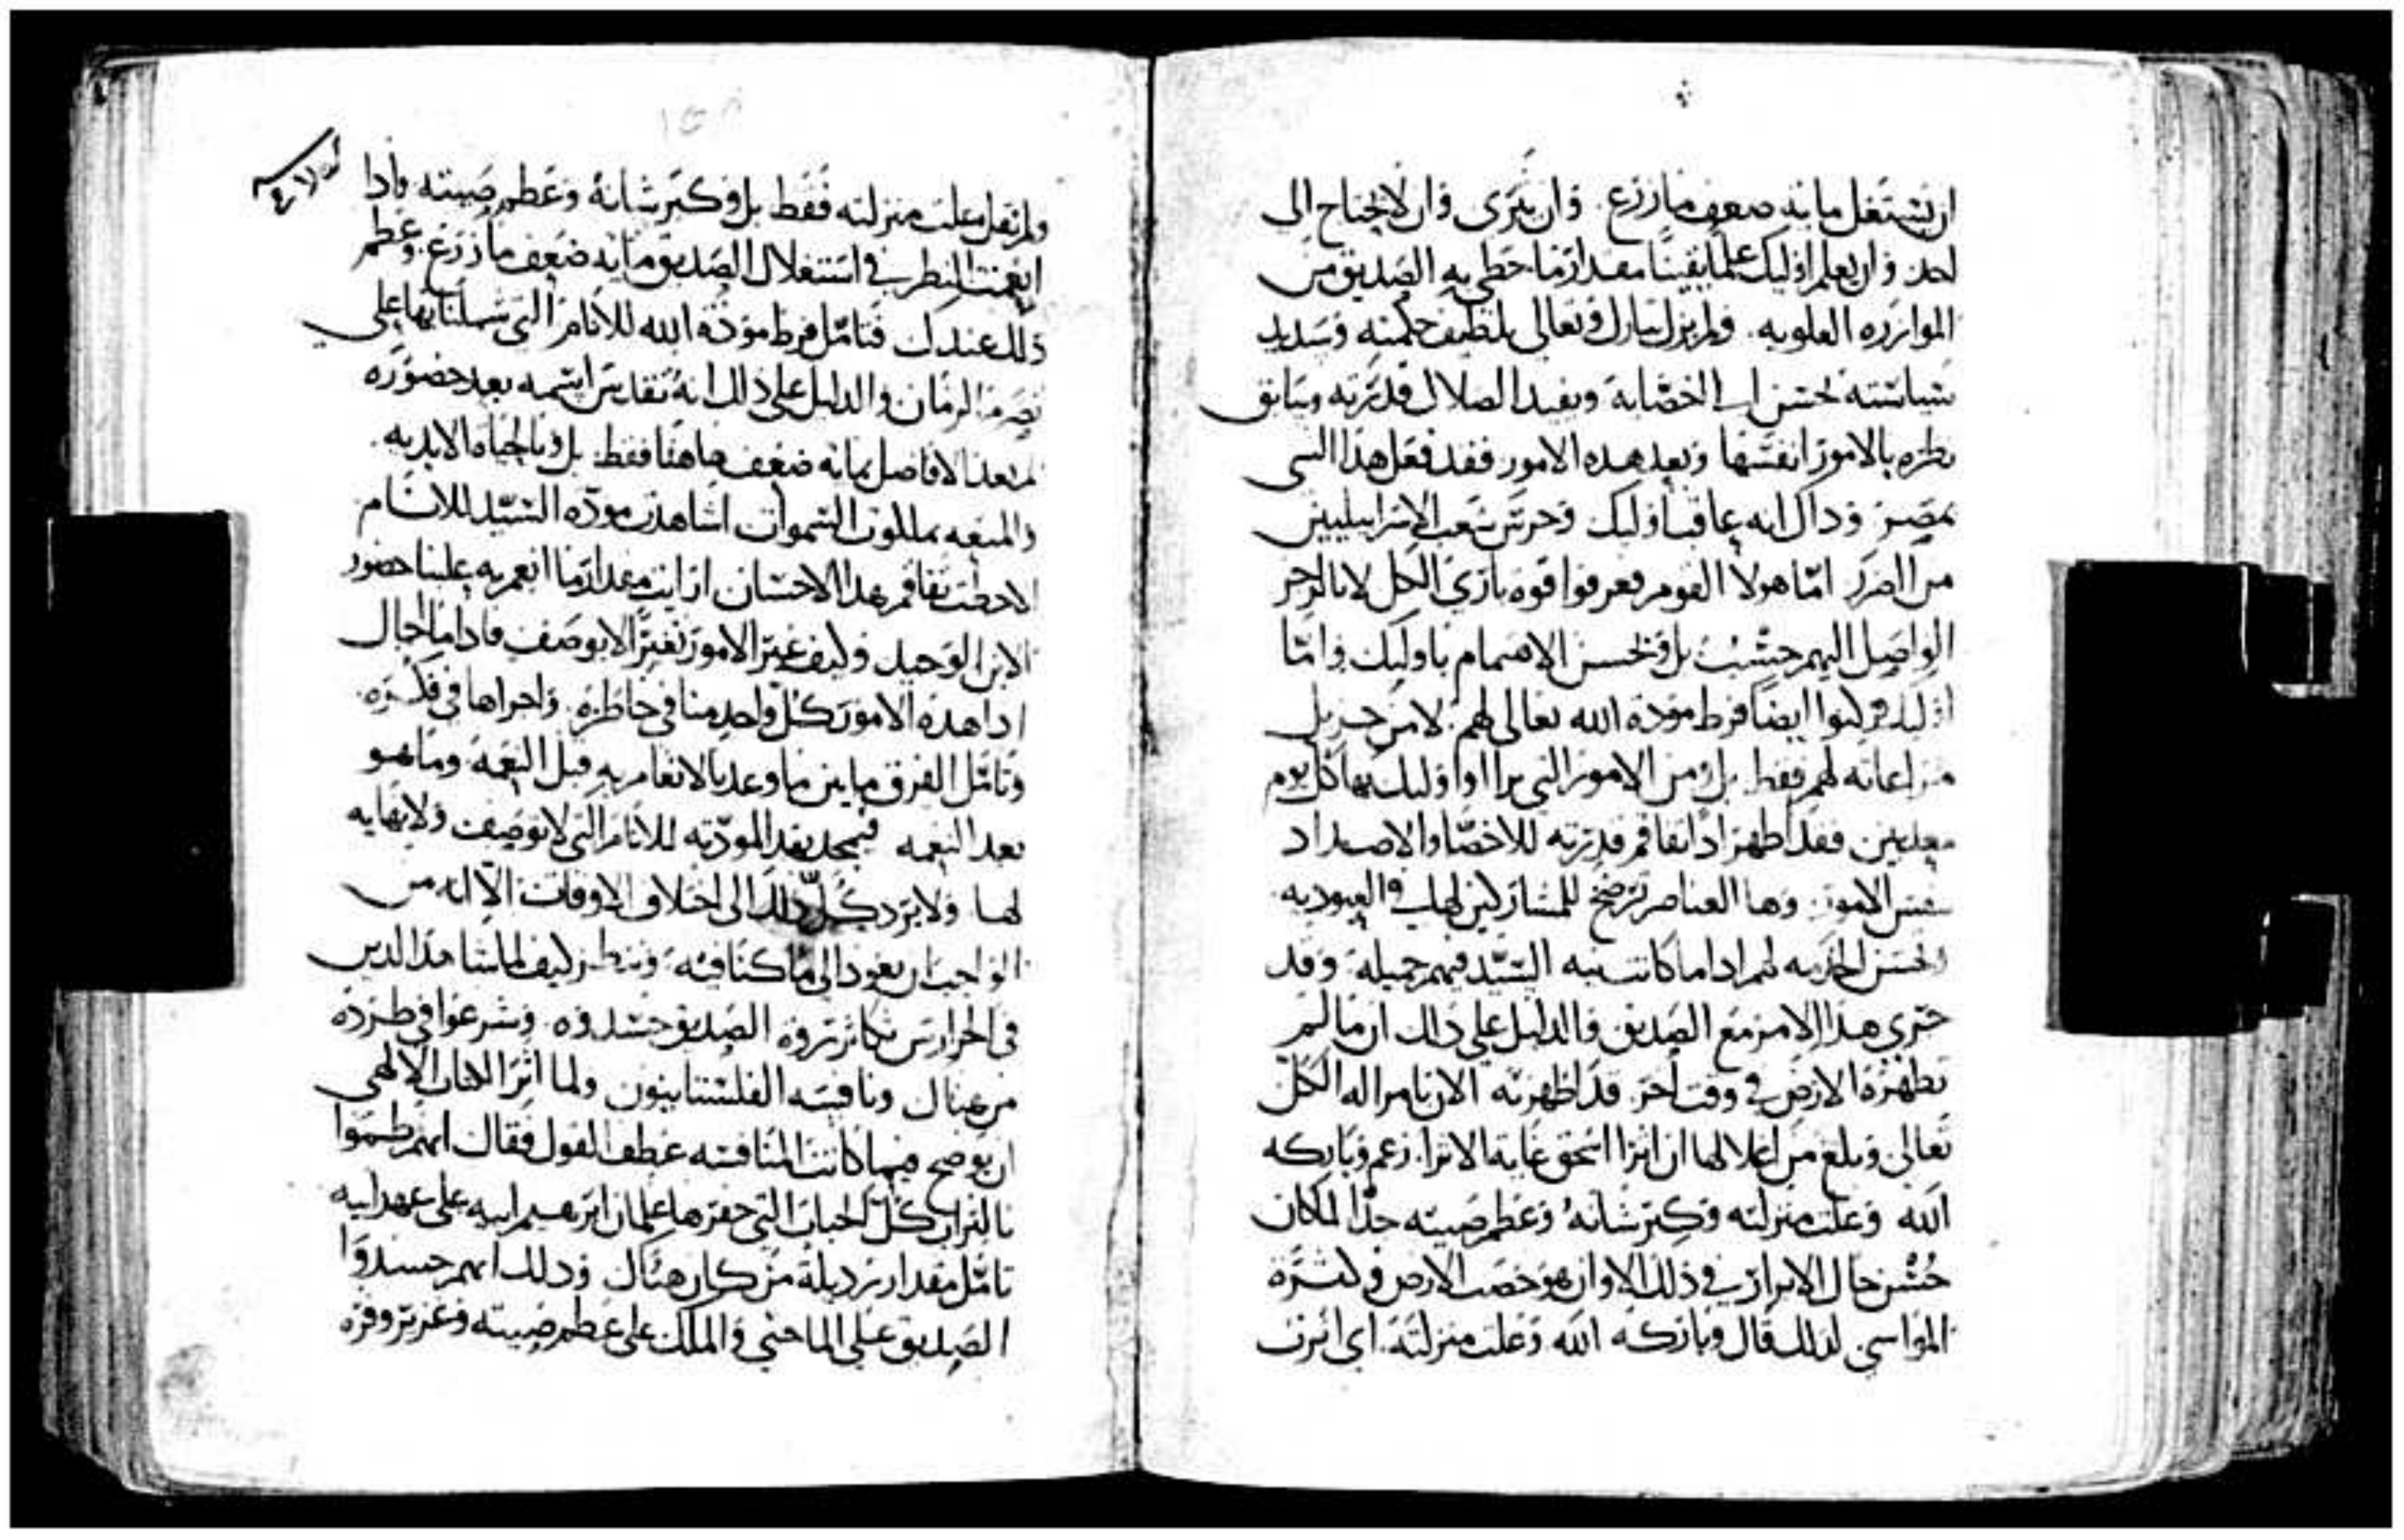 ان يستغل مايه ضعف مازرع. وان يثرى وان لايحتاج الى
احد وان يعلم اوليك علما يقينا مقدار ما حظي به الصديق من
الموازره العلويه. ولم يزل تبارك وتعالى بلطيف حكمته وسديد
نظره بالامور انفسها وبعد هذه الامور فقد فعل هذا الشى
بمصر وذاك انه عاقب اوليك وحرس شعب الاسراييليين
من الضرر اما هولا القوم فعرفوا قوه باري الكل لا بالزجر
الواصل اليهم حسب بل وبحسن الاهتمام باوليك واما
ايضا فرط مودة الله تعالى لهم لا من جزيل
مراعاته لهم فقط بل ومن الامور التي يرا اوليك بها كل يوم
معذبين فقد اظهر اذا تفاقم قدرته للاخصا والاضداد
بنفس الامور. وها العناصر ترضخ للمشاركين لها في العبوديه
بحسن الخدمه لهم اذا ما كانت نيه السيد فيهم جميله وقد
جرى هذا الامر مع الصديق والدليل على ذلك ان ما لم
تظهره الارض في وقت اخر قد اظهرته الان بامر اله الكل
تعالى وبلغ من اغلالها ان اثرا اسحق غاية الاثرا. زعم وباركه
الله وعلت منزلته وكبر شانه وعظم صيته جدا لما كان
حسن حال الابرار في ذلك الاوان هو خصب الارض وكثرة
المواسي لذلك قال وباركه الله وعلت منزلته. اي اثرت
ولم يقل علت منزلته فقط بل وكبر شانه وعظم صيته فاذا
انعمت النظر في استغلال الصديق مايه ضعف ما زرع. وعظم
ذلك عندك فتامل فرط مودة الله للانام التي شملنا بها على
تصرم الزمان والدليل على ذلك انه تقدس اسمه بعد حضوره
لم يعد الافاضل بمايه ضعف هاهنا فقط بل وبالحياه الابديه.
والمتعه بملكوت السموات اشاهدت مودة السيد للانام
الاحظت تفاقم هذا الاحسان ارايت مقدار ما انعم به علينا حضور
الابن الوحيد وكيف غير الامور تغيرا لا يوصف فاذا ما اجال
اذا هذه الامور كل واحد منا في خاطره. واجراها في فكره.
وتامل الفرق ما بين ما وعد بالانعام به قبل النعمه وما هو
بعد النعمه فيمجد بقدر المودته للانام التي لا توصف ولا نهايه
لها ولا يرد كل ذلك الى اختلاف الاوقات الا انه من
الواجب ان نعود الى ما كنا فيه وننظر كيف لما شاهد الذين
في الخرارس تكاثر ثروة الصديق حسدوه. وشرعوا في طرده
من هناك ونافسه الفلستانيون ولما اثر الكتاب الالهي
ان يوضح فيما كانت المنافسه عطف القول فقال انهم طموا
بالتراب كل الجباب التي حفرها غلمان ابرهيم ابيه على عهد ابيه
تامل مقدار رذيلة من كان هناك وذلك انهم حسدوا
الصديق على الما حتي والملك على عظم صيته وغزير وفره